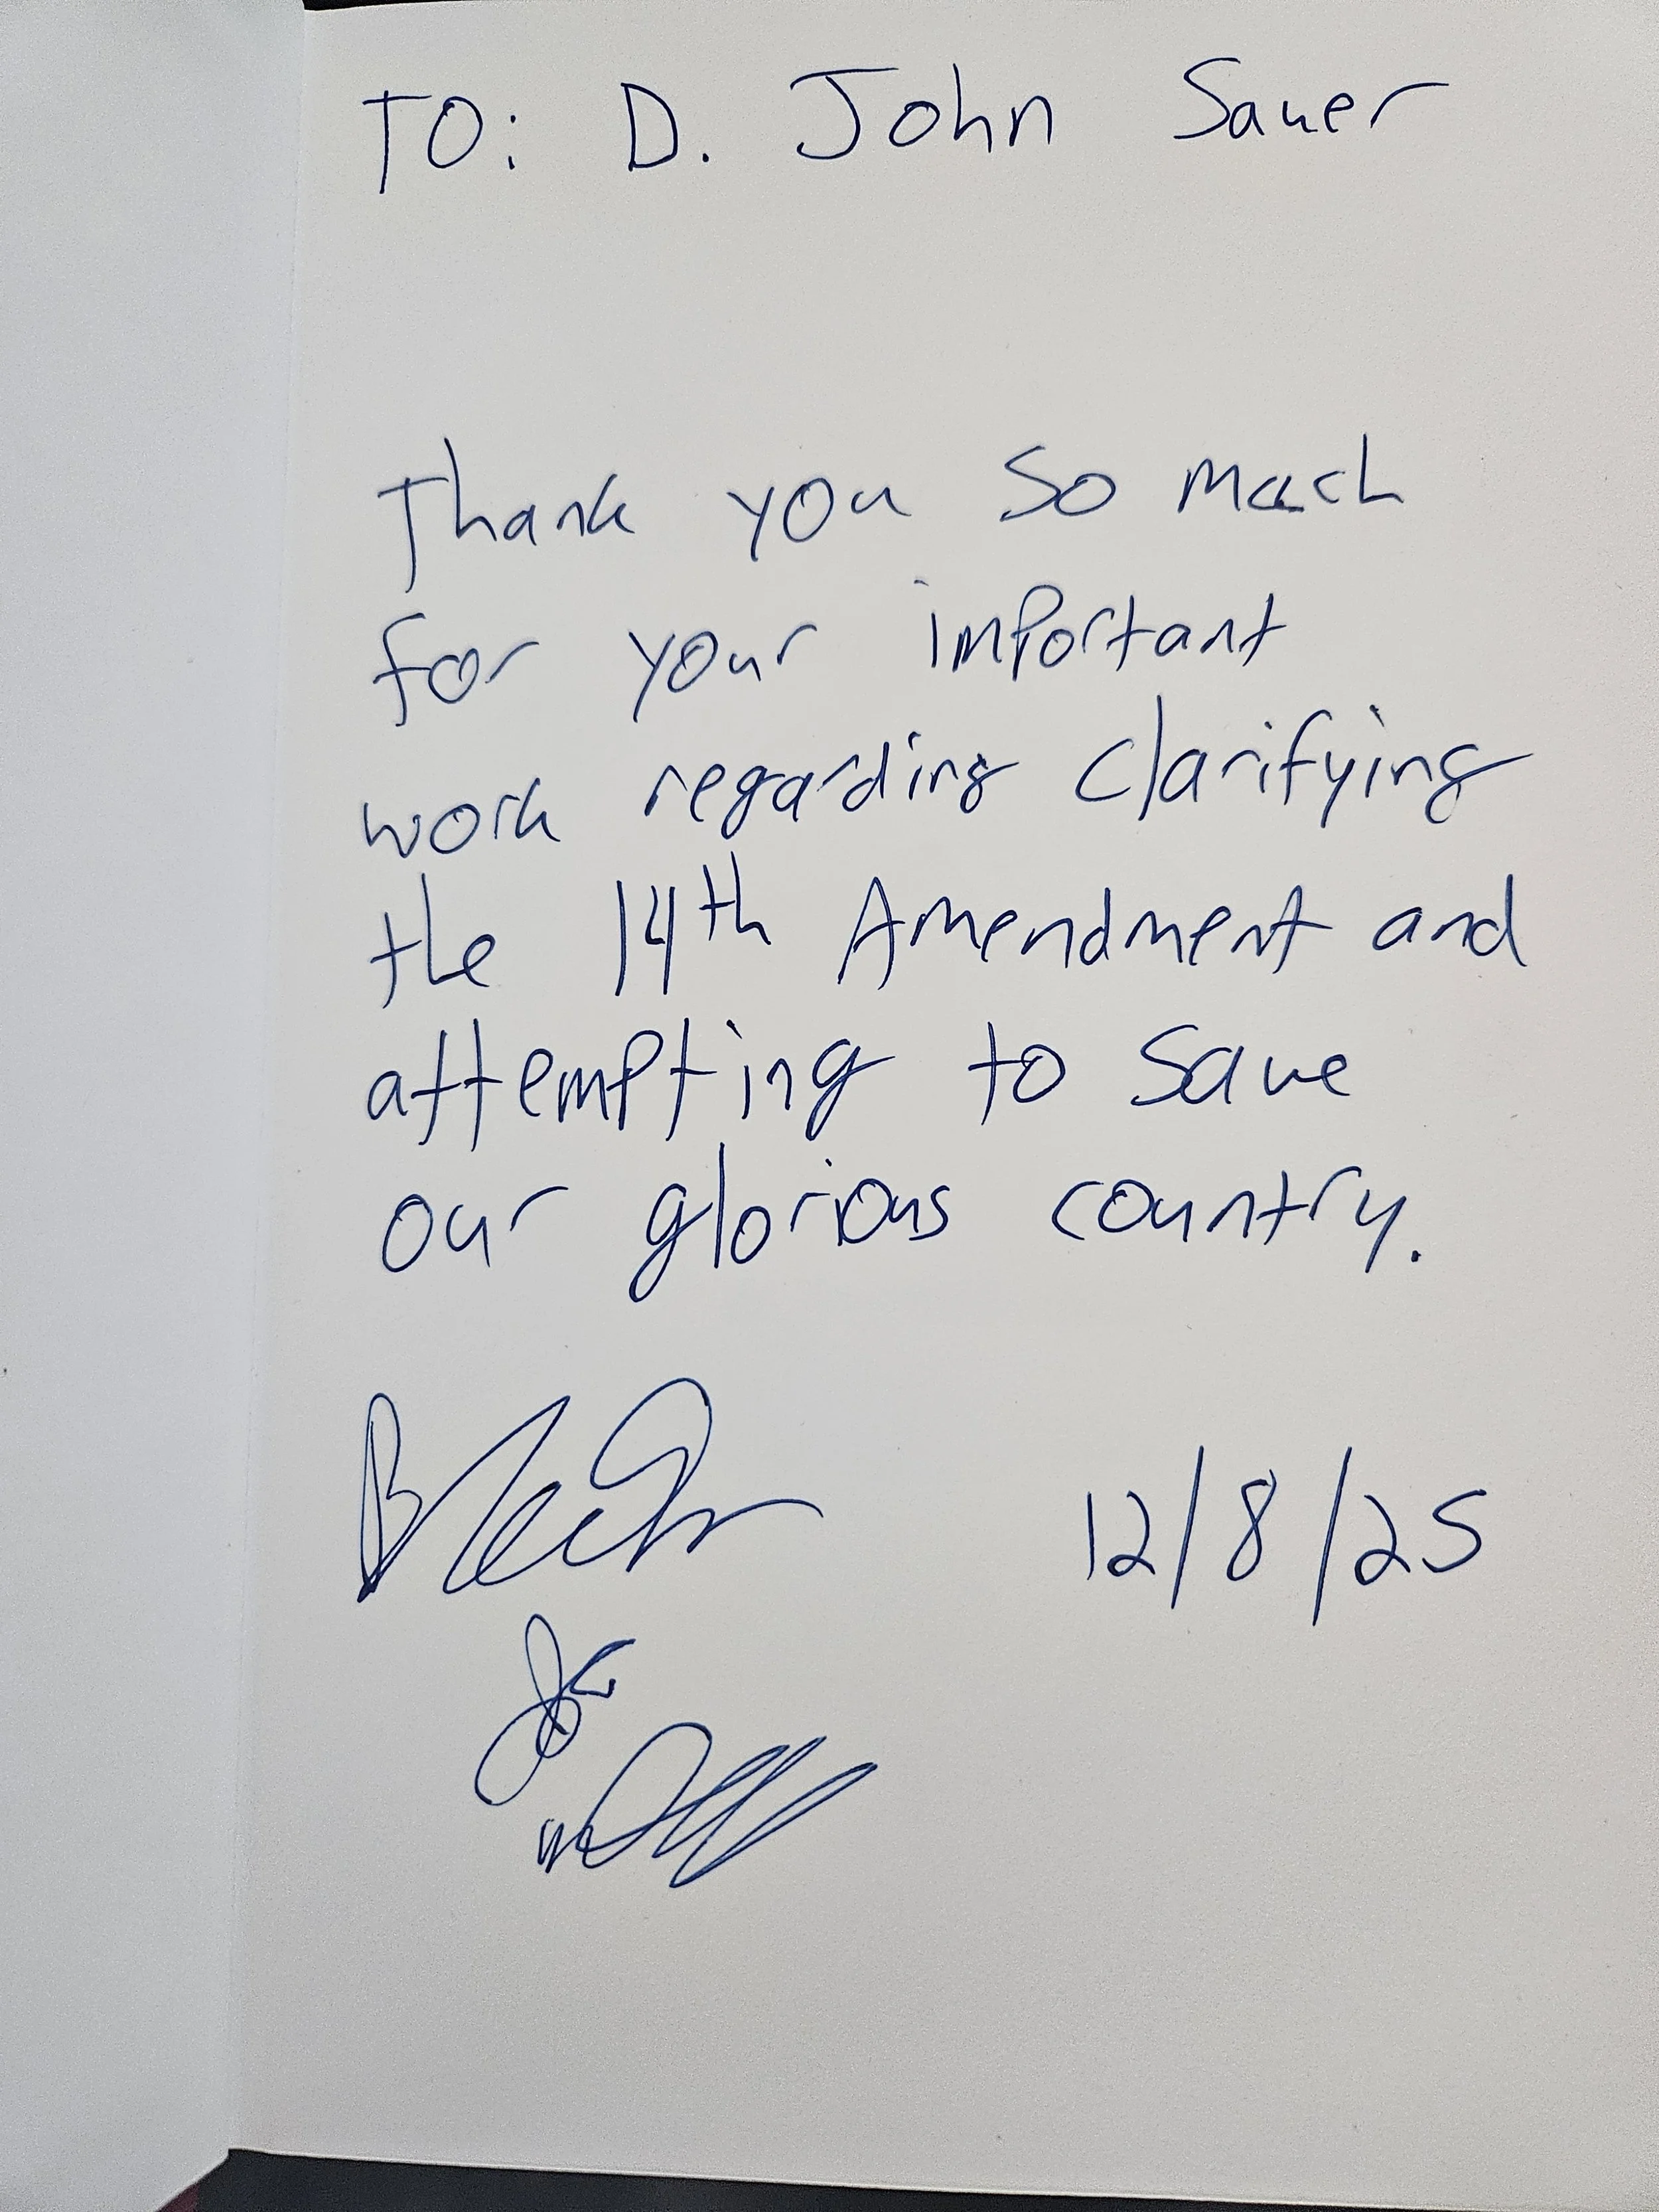 TO: D. John Sauer
Thank you so much
for your important
work regarding clarifying
the 14th Amendment and
attempting to save
our glorious country.
12/8/25